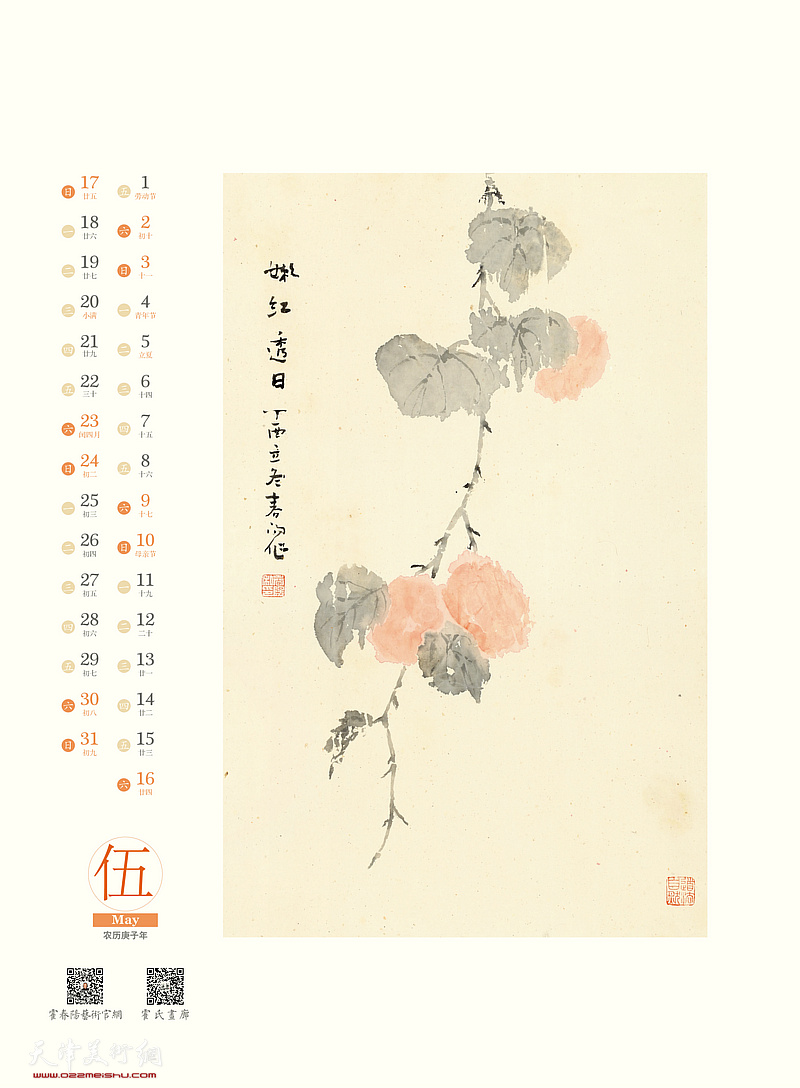 日 17 廿五
五 1 劳动节
一 18 廿六
六 2 初十
二 19 廿七
日 3 十一
三 20 小满
一 4 青年节
四 21 廿九
二 5 立夏
五 22 三十
三 6 十四
六 23 闰四月
四 7 十五
日 24 初二
五 8 十六
一 25 初三
六 9 十七
二 26 初四
日 10 母亲节
三 27 初五
一 11 十九
四 28 初六
二 12 二十
五 29 初七
三 13 廿一
六 30 初八
四 14 廿二
日 31 初九
五 15 廿三
六 16 廿四
伍
May
农历庚子年
霍春陽藝術官網
霍氏畫廊
嫩紅透日
丁酉立冬春陽作
天津美術網
www.022meishu.com